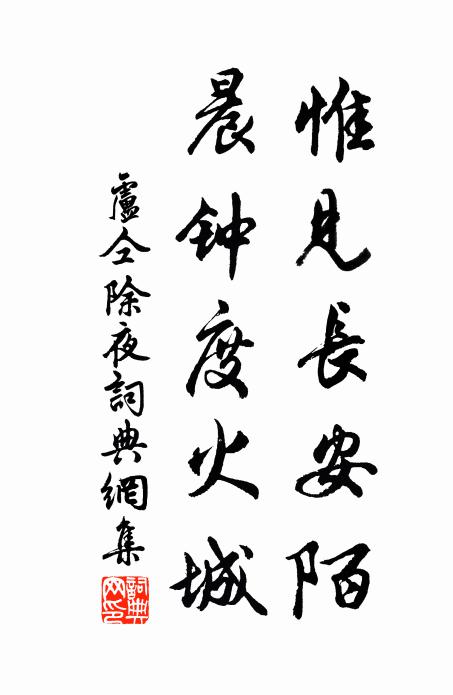 惟見長安陌
晨钟度火城
盧仝除夜詞典網集
詞典網印